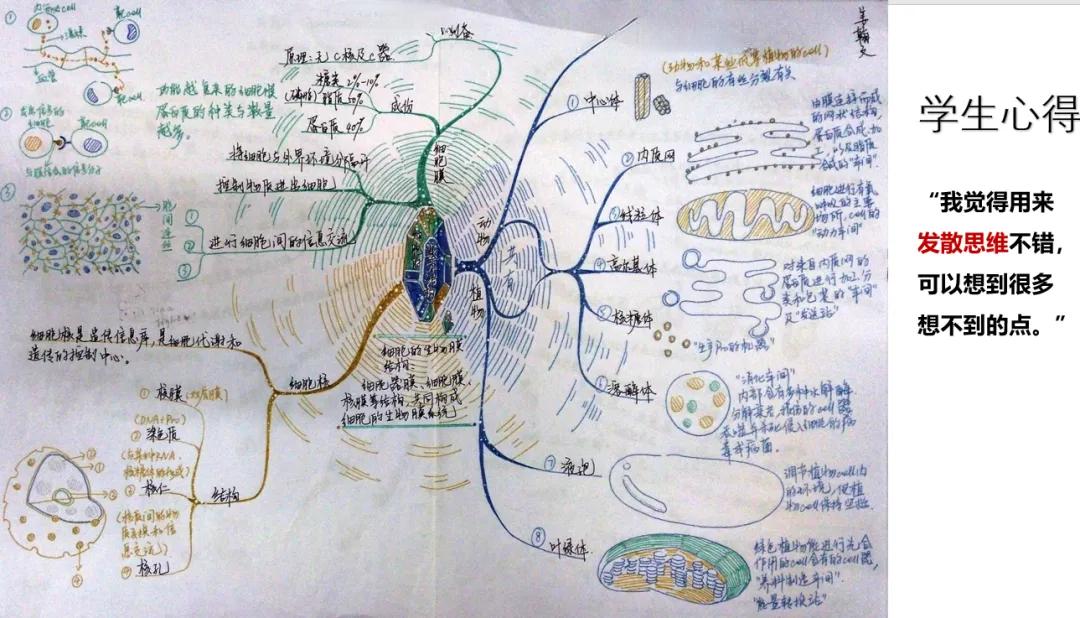 内分泌cell
靶cell
激素
血管
靶cell
发出信号的
细胞
靶cell
与膜结合的信号分子
功能越复杂的细胞膜
蛋白质的种类与数量
越多。
制备
原理:无C核及C器
糖类 2%~10%
(磷脂)脂质50%
蛋白质 40%
成份
细胞膜
将细胞与外界环境分隔开
控制物质进出细胞
进行细胞间的信息交流
①
②
③
胞间连丝
细胞核是遗传信息库,是细胞代谢和
遗传的控制中心。
细胞核
结构
① 核膜(双层膜)
(DNA+Pro)
② 染色质
(与某种RNA、
核糖体的形成)
③ 核仁
(核质间的物
质交换和信
息交流)
④ 核孔
细胞的生物膜
结构
细胞器膜、细胞膜、
核膜等结构,共同构成
细胞的生物膜系统
动物
共有
植物
①中心体
(动物和某些低等植物的cell)
与细胞的有丝分裂有关
②内质网
由膜连接而成
的网状结构,
蛋白质合成加
工,以及脂质
合成的"车间"
③线粒体
细胞进行有氧
呼吸的主要
场所,cell的
"动力车间"
④高尔基体
对来自内质网的
蛋白质进行加工、分
类和包装的"车间"
及"发送站"
⑤核糖体
"生产Pro的机器"
⑥溶酶体
"消化车间"
内部含有多种水解酶,
分解衰老、损伤的cell器
吞噬并杀死侵入细胞的病
毒或病菌。
⑦液泡
调节植物cell内
的环境,使植
物cell保持坚挺
⑧叶绿体
绿色植物能进行光合
作用的cell含有的cell器,
"养料制造车间"
"能量转换站"
学生心得
“我觉得用来
发散思维不错,
可以想到很多
想不到的点。”